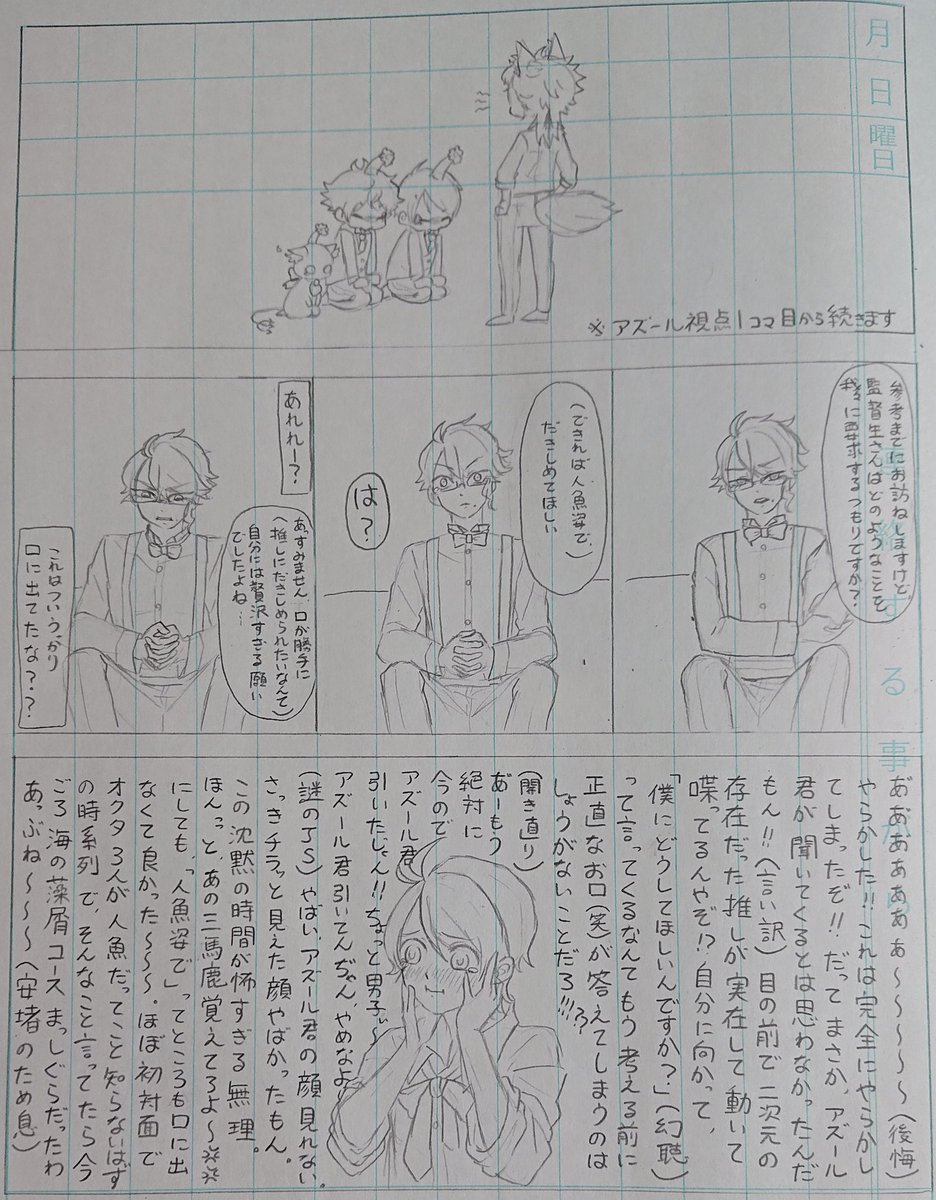 月
日
曜日
※アズール視点1コマ目から続きます
絡する事
参考までにお訪ねしますけど、
監督生さんはどのようなことを
我々に要求するつもりですか？
(できれば人魚姿で、)
だきしめてほしい
は？
あれれー？
あ、すみません、口が勝手に
(推しにだきしめられたいなんて)
自分には贅沢すぎる願い
でしたよね…
これはついうっかり
口に出てたな？？
あ゛あぁぁぁぁぁ〜〜〜〜〜(後悔)
やらかした!!これは完全にやらかし
てしまったぞ!!だってまさか、アズール
君が聞いてくるとは思わなかったんだ
もん!!(言い訳)目の前で二次元の
存在だった推しが実在して動いて
喋ってるんやぞ!?自分に向かって、
「僕にどうしてほしいんですか？」(幻聴)
って言ってくるなんてもう考える前に
正直なお口(笑)が答えてしまうのは
しょうがないことだろ!!!??
(開き直り)
あーもう
絶対に
今ので
アズール君
引いたじゃん!!ちょっと男子ぃ〜
アズール君引いてんぢゃん、やめなよ〜
(謎のJS)やばい、アズール君の顔見れない。
さっきチラッと見えた顔やばかったもん。
この沈黙の時間が怖すぎる無理。
ほんっと、あの三馬鹿覚えてろよ〜※※
にしても、「人魚姿で」ってところも口に出
なくて良かった〜〜〜。ほぼ初対面で
オクタ3人が人魚だってこと知らないはず
の時系列で、そんなこと言ってたら今
ごろ海の藻屑コースまっしぐらだったわ
あっぶね〜〜〜〜(安堵のため息)